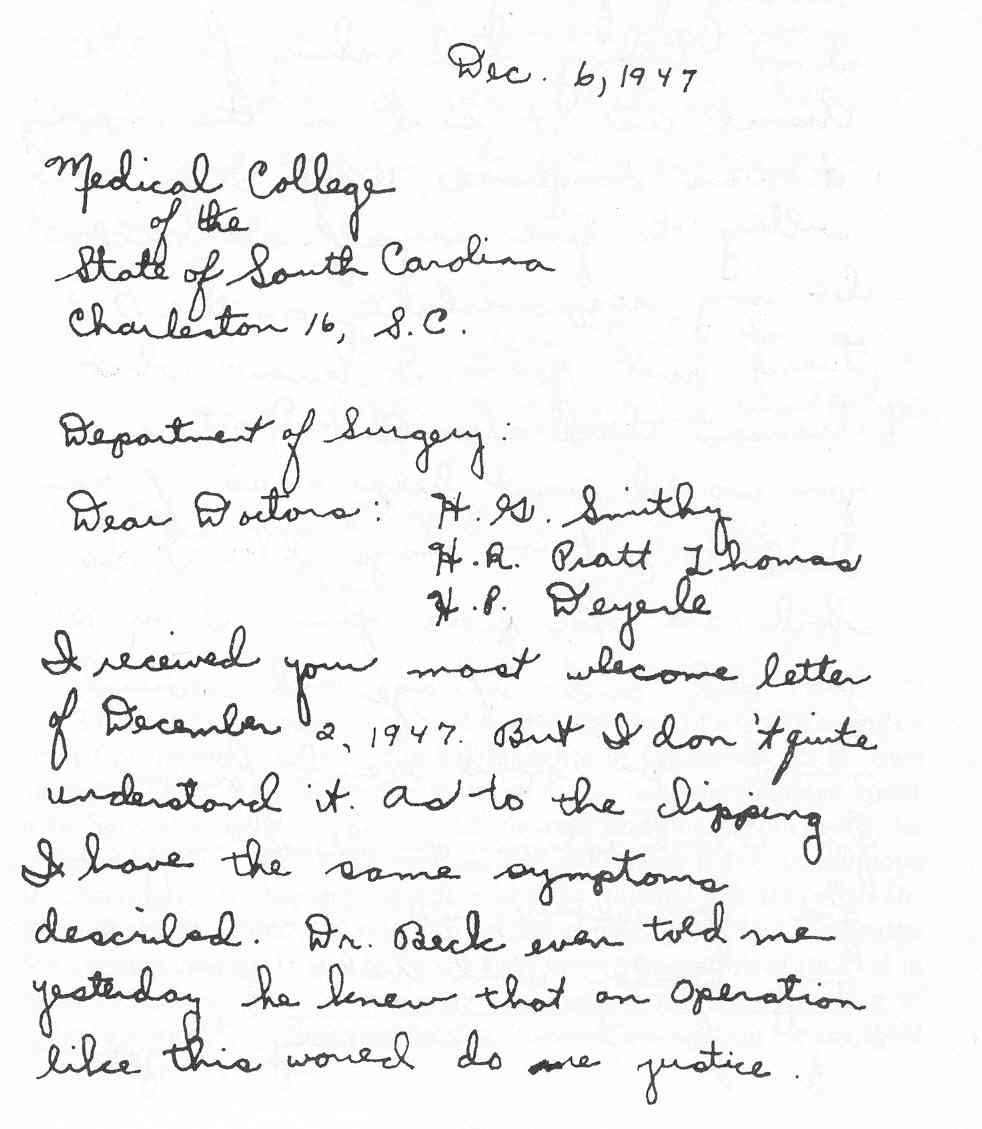 Dec. 6, 1947
Medical College
of the
State of South Carolina
Charleston 16, S.C.
Department of Surgery:
Dear Doctors: H. G. Smithy
H. R. Pratt Thomas
H. P. Deyerle
I received your most welcome letter
of December 2, 1947. But I don't quite
understand it. As to the clipping
I have the same symptoms
described. Dr. Beck even told me
yesterday he knew that an operation
like this would do me justice.